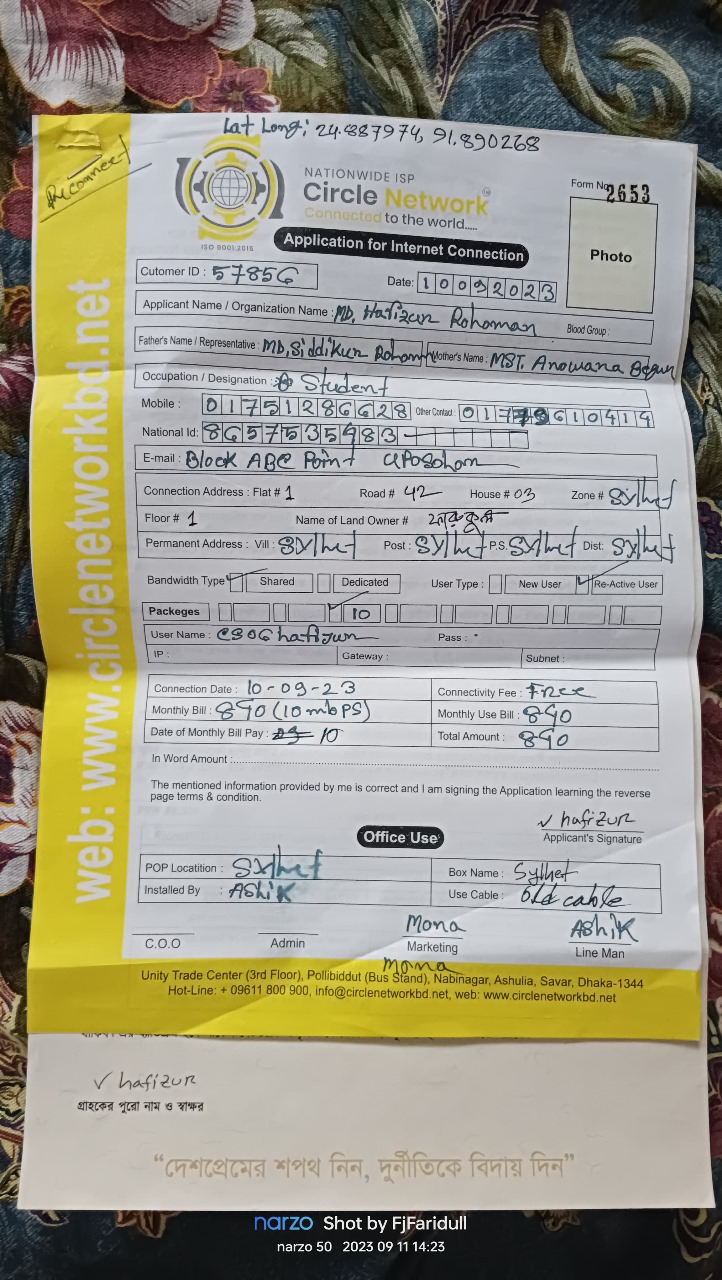 Lat Long: 24.887974, 91.890268
Reconnect
NATIONWIDE ISP
Circle Network
Connected to the world.....
ISO 9001:2015
Form No 2653
Photo
Application for Internet Connection
Cutomer ID : 57856 Date: 10092023
Applicant Name / Organization Name : MD. Hafizur Rohoman Blood Group :
Father's Name / Representative : MD, Siddikur Mother's Name : MST. Anowana Begum
Occupation / Designation : Student
Mobile : 01751286628 Other Contact :
National Id: 8657535983
E-mail : Block ABC Point uposohom
Connection Address : Flat # 1 Road # 42 House # 03 Zone # Sylhet
Floor # 1 Name of Land Owner #
Permanent Address : Vill : Sylhet Post : Sylhet P.S. Sylhet Dist: Sylhet
Bandwidth Type Shared Dedicated User Type : New User Re-Active User
Packeges 10
User Name : Pass :
IP : Gateway : Subnet :
Connection Date : 10-09-23 Connectivity Fee : Free
Monthly Bill : 890 (10 mbps) Monthly Use Bill : 890
Date of Monthly Bill Pay : 10 Total Amount : 890
In Word Amount :
The mentioned information provided by me is correct and I am signing the Application learning the reverse
page terms & condition.
hafizur
Applicant's Signature
Office Use
POP Locatition : Sylhet Box Name : Sylhet
Installed By : AShiK Use Cable : Old cable
Mona AShiK
C.O.O Admin Marketing Line Man
Mona
Unity Trade Center (3rd Floor), Pollibiddut (Bus Stand), Nabinagar, Ashulia, Savar, Dhaka-1344
Hot-Line: + 09611 800 900, info@circlenetworkbd.net, web: www.circlenetworkbd.net
web: www.circlenetworkbd.net
hafizur
গ্রাহকের পুরো নাম ও স্বাক্ষর
“দেশপ্রেমের শপথ নিন, দুর্নীতিকে বিদায় দিন”
narzo Shot by FjFaridull
narzo 50 2023 09 11 14:23